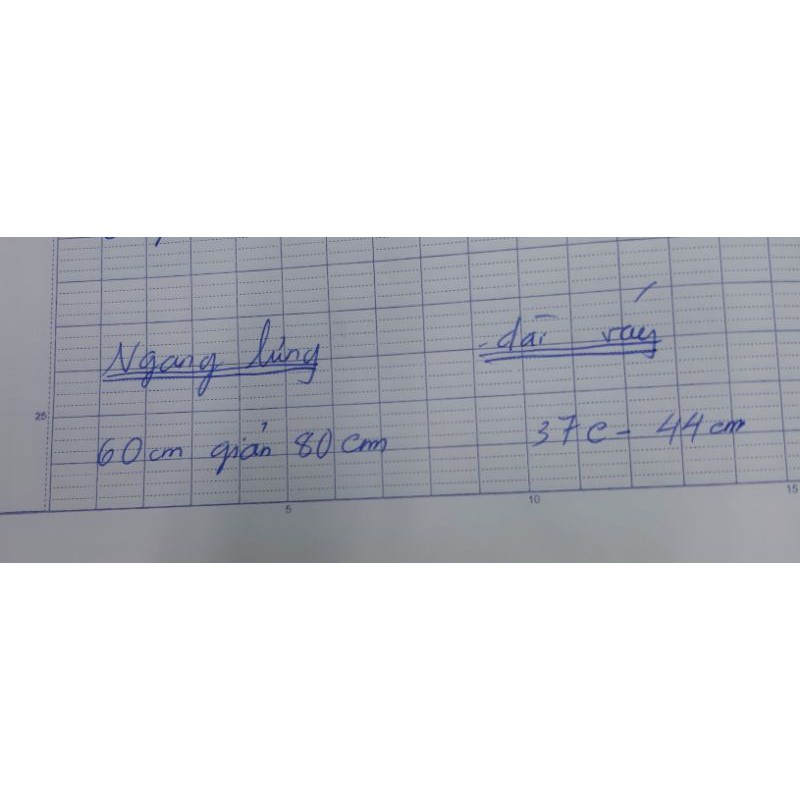 Ngang lưng
dài váy
25
60cm giản 80cm
37c - 44cm
5
10
15